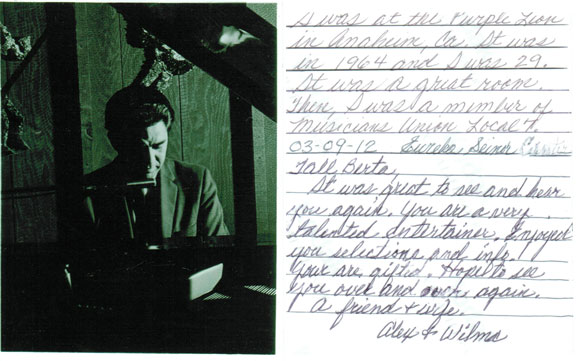 I was at the Purple Lion
in Anaheim, Ca. It was
in 1964 and I was 29.
It was a great room.
Then, I was a mimber of
Musicians Union Local 7.
03-09-12 Eureka Seinor
Tall Berta,
It was great to see and hear
you again. You are a very
talented entertainer. Enjoyed
you selections and info.
Your are gifted. Hope to see
you over and over again.
A friend & wife.
Alex & Wilma